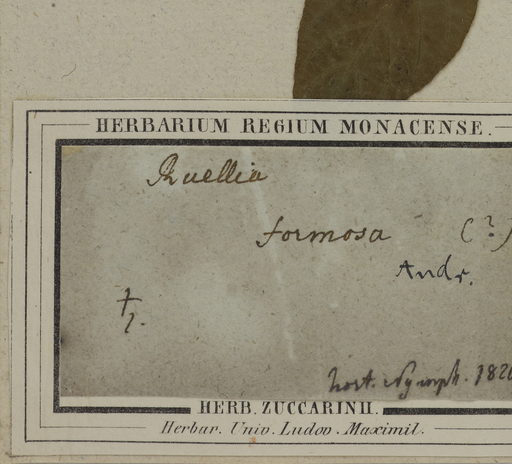 HERBARIUM REGIUM MONACENSE.
Ruellia
formosa (?)
Andr.
hort. Nymph. 182
HERB. ZUCCARINII.
Herbar. Univ. Ludov. Maximil.